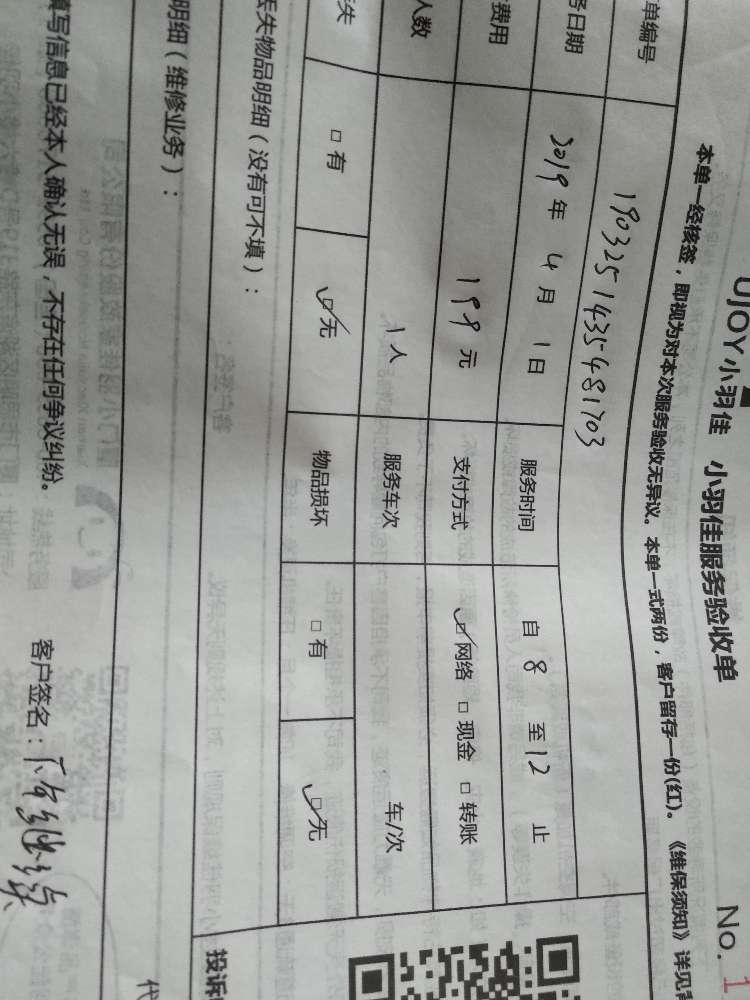 UJOY小羽佳 小羽佳服务验收单
No. 1
本单一经核签，即视为对本次服务验收无异议。本单一式两份，客户留存一份(红)。《维保须知》详见
单编号 190325143548170​3
务日期 2019年 4月 1日 服务时间 自 8 至12 止
费用 199元 支付方式 ☑网络 □现金 □转账
人数 1人 服务车次 车/次
失 □有 ☑无 物品损坏 □有 ☑无
丢失物品明细（没有可不填）：
明细（维修业务）：
投诉
填写信息已经本人确认无误，不存在任何争议纠纷。 客户签名：
代